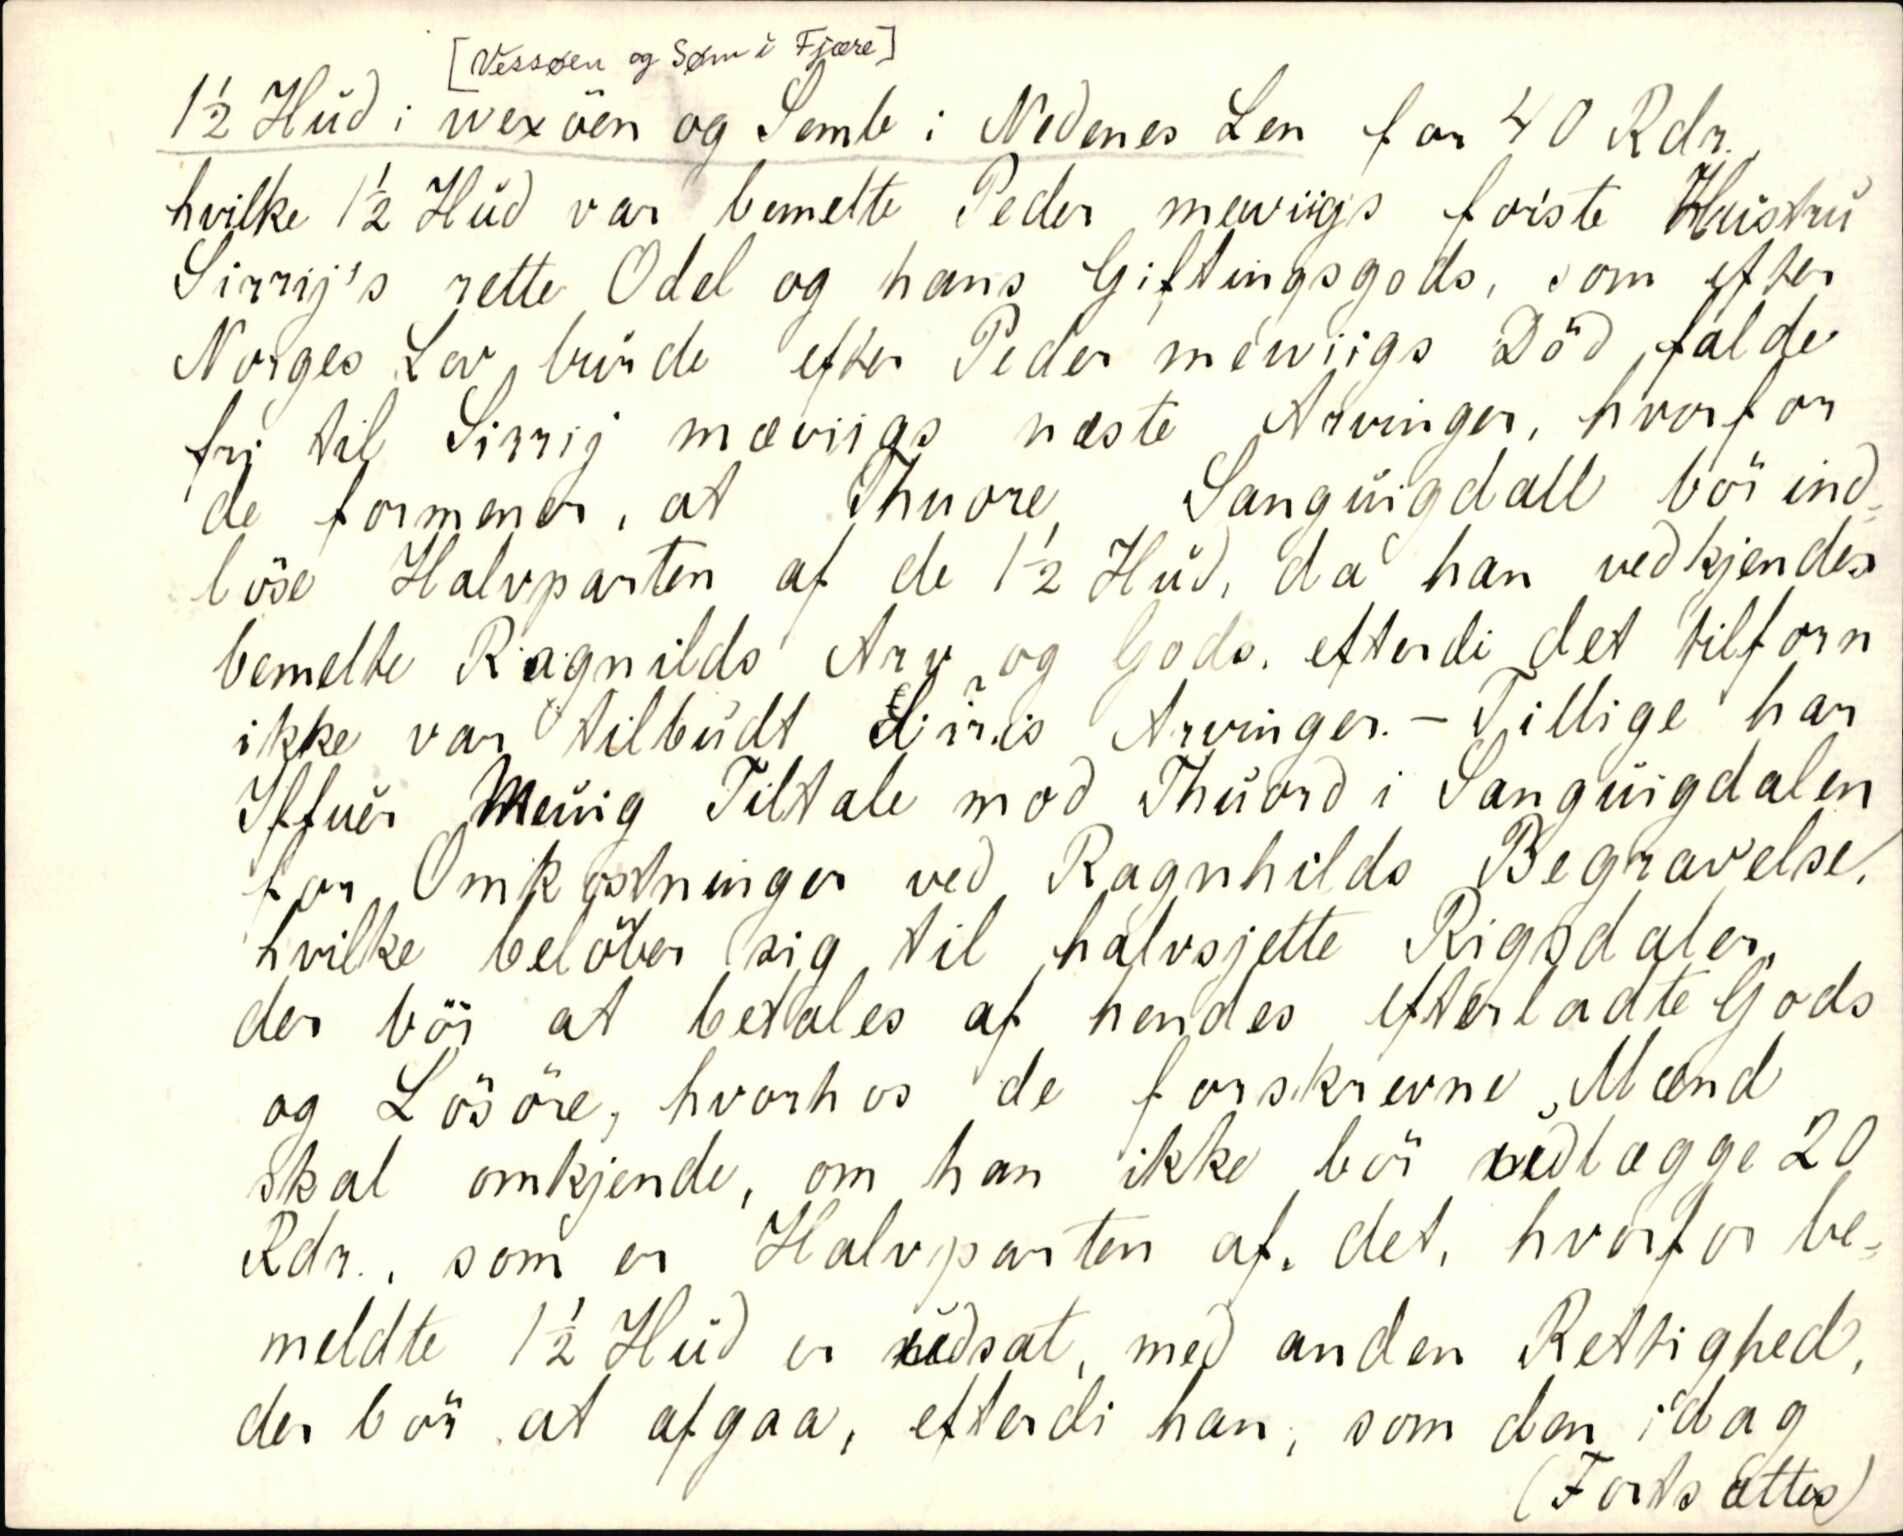 [Vessøen og Søm i Fjære]
1½ Hud i wexöen og Semb i Nedenes Len for 40 Rdr.,
hvilke 1½ Hud var bemelte Peder mæwiigs förste Hustru
Sirrij's rette Odel og hans Giftingsgods, som efter
Norges Lov burde efter Peder mæwiigs Död falde
fri til Sirrij mæviigs næste Arvinger, hvorfor
de formener, at Thuore Sanguigdall bör ind-
löse Halvparten af de 1½ Hud, da han vedkjendes
bemelte Ragnilds Arv og Gods, efterdi det tilforn
ikke var tilbudt Siris Arvinger. – Tillige har
Iffuer Meuig Tiltale mod Thuord i Sanguigdalen
for Omkostninger ved Ragnhilds Begravelse,
hvilke belöber sig til halvsjette Rigsdaler,
der bör at betales af hendes efterladte Gods
og Lösöre, hvorhos de forskrevne Mænd
skal omkjende, om han ikke bör udlægge 20
Rdr., som er Halvparten af det, hvorfor be-
meldte 1½ Hud er udsat, med anden Rettighed,
der bör at afgaa, efterdi han, som den idag
(Fortsættes)